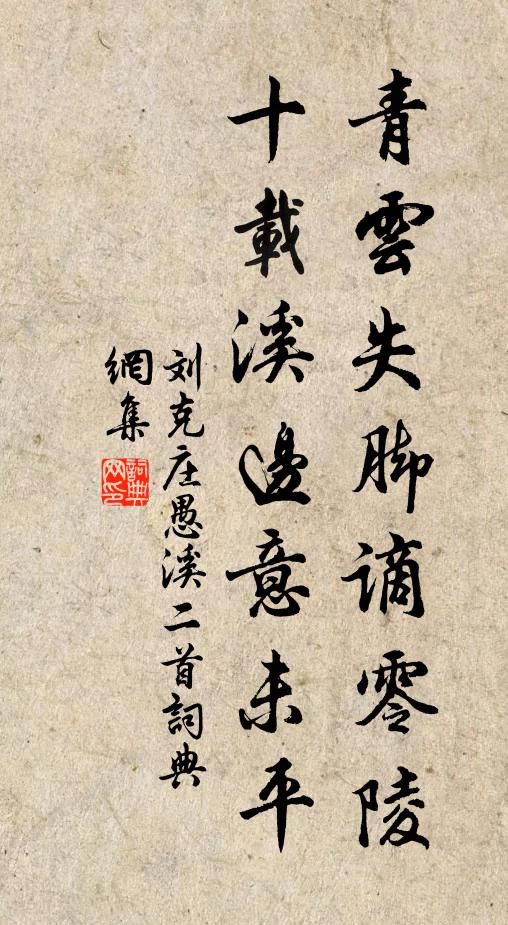 青雲失脚謫零陵
十載溪邊意未平
刘克庄愚溪二首詞典
網集
詞典
网印